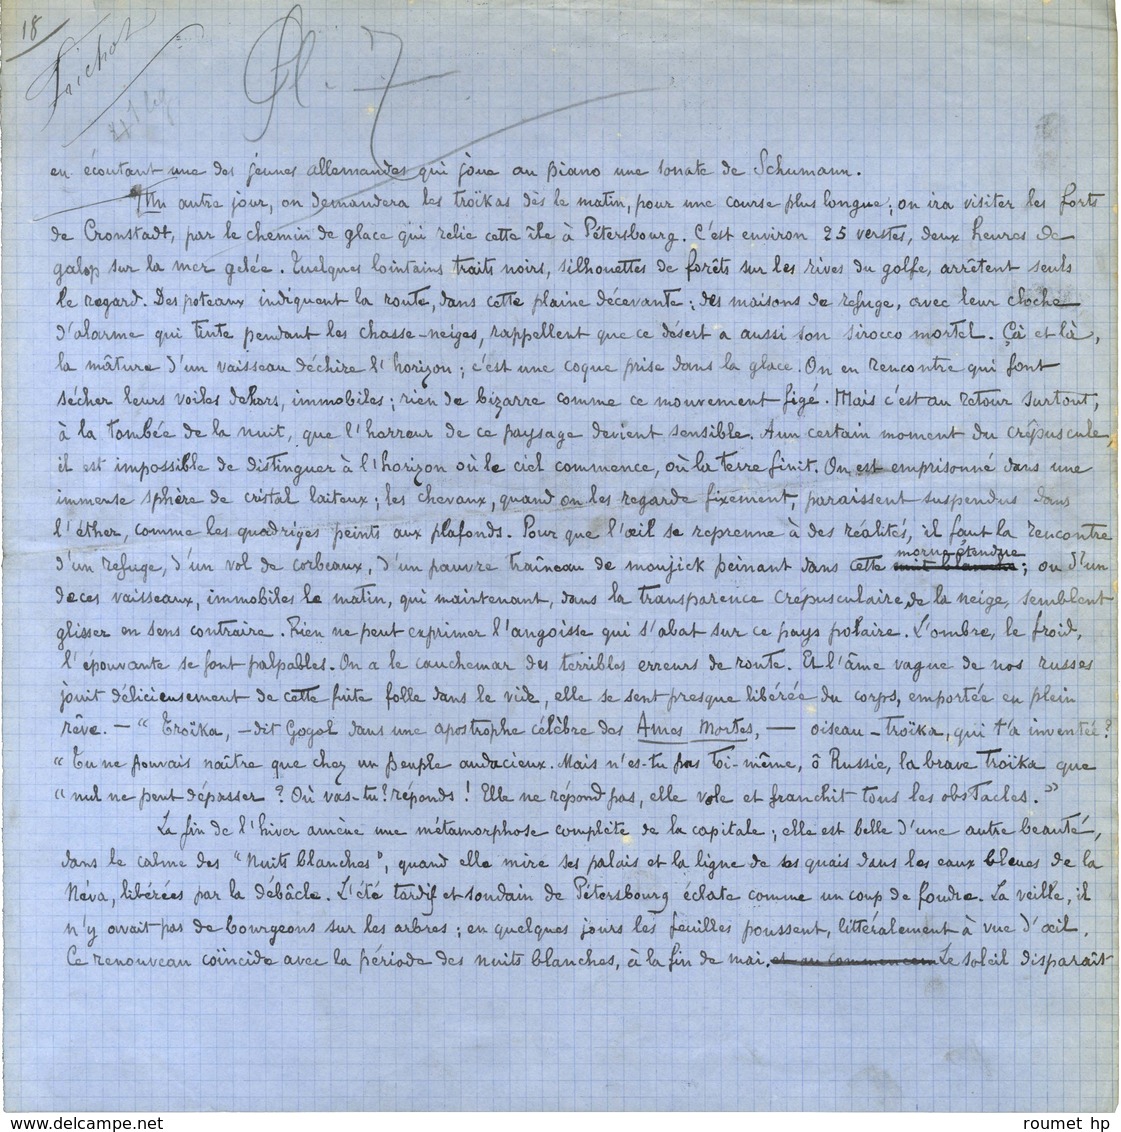 18
Pl. 7
en écoutant une des jeunes allemandes qui joue au piano une sonate de Schumann.
Un autre jour, on demandera les troïkas dès le matin, pour une course plus longue; on ira visiter les forts
de Cronstadt, par le chemin de glace qui relie cette île à Pétersbourg. C'est environ 25 verstes, deux heures de
galop sur la mer gelée. Quelques lointains traits noirs, silhouettes de forêts sur les rives du golfe, arrêtent seuls
le regard. Des poteaux indiquent la route, dans cette plaine décevante; des maisons de refuge, avec leur cloche
d'alarme qui tinte pendant les chasse-neiges, rappellent que ce désert a aussi son sirocco mortel. Çà et là,
la mâture d'un vaisseau déchire l'horizon; c'est une coque prise dans la glace. On en rencontre qui font
sécher leurs voiles dehors, immobiles; rien de bizarre comme ce mouvement figé. Mais c'est au retour surtout,
à la tombée de la nuit, que l'horreur de ce paysage devient sensible. A un certain moment du crépuscule,
il est impossible de distinguer à l'horizon où le ciel commence, où la terre finit. On est emprisonné dans une
immense sphère de cristal laiteux; les chevaux, quand on les regarde fixement, paraissent suspendus dans
l'éther, comme les quadriges peints aux plafonds. Pour que l'œil se reprenne à des réalités, il faut la rencontre
morne étendue
d'un refuge, d'un vol de corbeaux, d'un pauvre traîneau de moujick peinant dans cette nuit blanche; ou d'un
de ces vaisseaux, immobiles le matin, qui maintenant, dans la transparence crépusculaire de la neige, semblent
glisser en sens contraire. Rien ne peut exprimer l'angoisse qui s'abat sur ce pays polaire. L'ombre, le froid,
l'épouvante se font palpables. On a le cauchemar des terribles erreurs de route. Et l'âme vague de nos russes
jouit délicieusement de cette fuite folle dans le vide, elle se sent presque libérée du corps, emportée en plein
rêve. — "Troïka, — dit Gogol dans une apostrophe célèbre des Ames Mortes, — oiseau-troïka, qui t'a inventée?
"Tu ne pouvais naître que chez un peuple audacieux. Mais n'es-tu pas toi-même, ô Russie, la brave troïka que
"nul ne peut dépasser? Où vas-tu? réponds! Elle ne répond pas, elle vole et franchit tous les obstacles."
La fin de l'hiver amène une métamorphose complète de la capitale; elle est belle d'une autre beauté,
dans le calme des "Nuits blanches", quand elle mire ses palais et la ligne de ses quais dans les eaux bleues de la
Néva, libérées par la débâcle. L'été tardif et soudain de Pétersbourg éclate comme un coup de foudre. La veille, il
n'y avait pas de bourgeons sur les arbres; en quelques jours les feuilles poussent, littéralement à vue d'œil.
Ce renouveau coïncide avec la période des nuits blanches, à la fin de mai, et au commencem Le soleil disparaît
roumet hp
www.delcampe.net